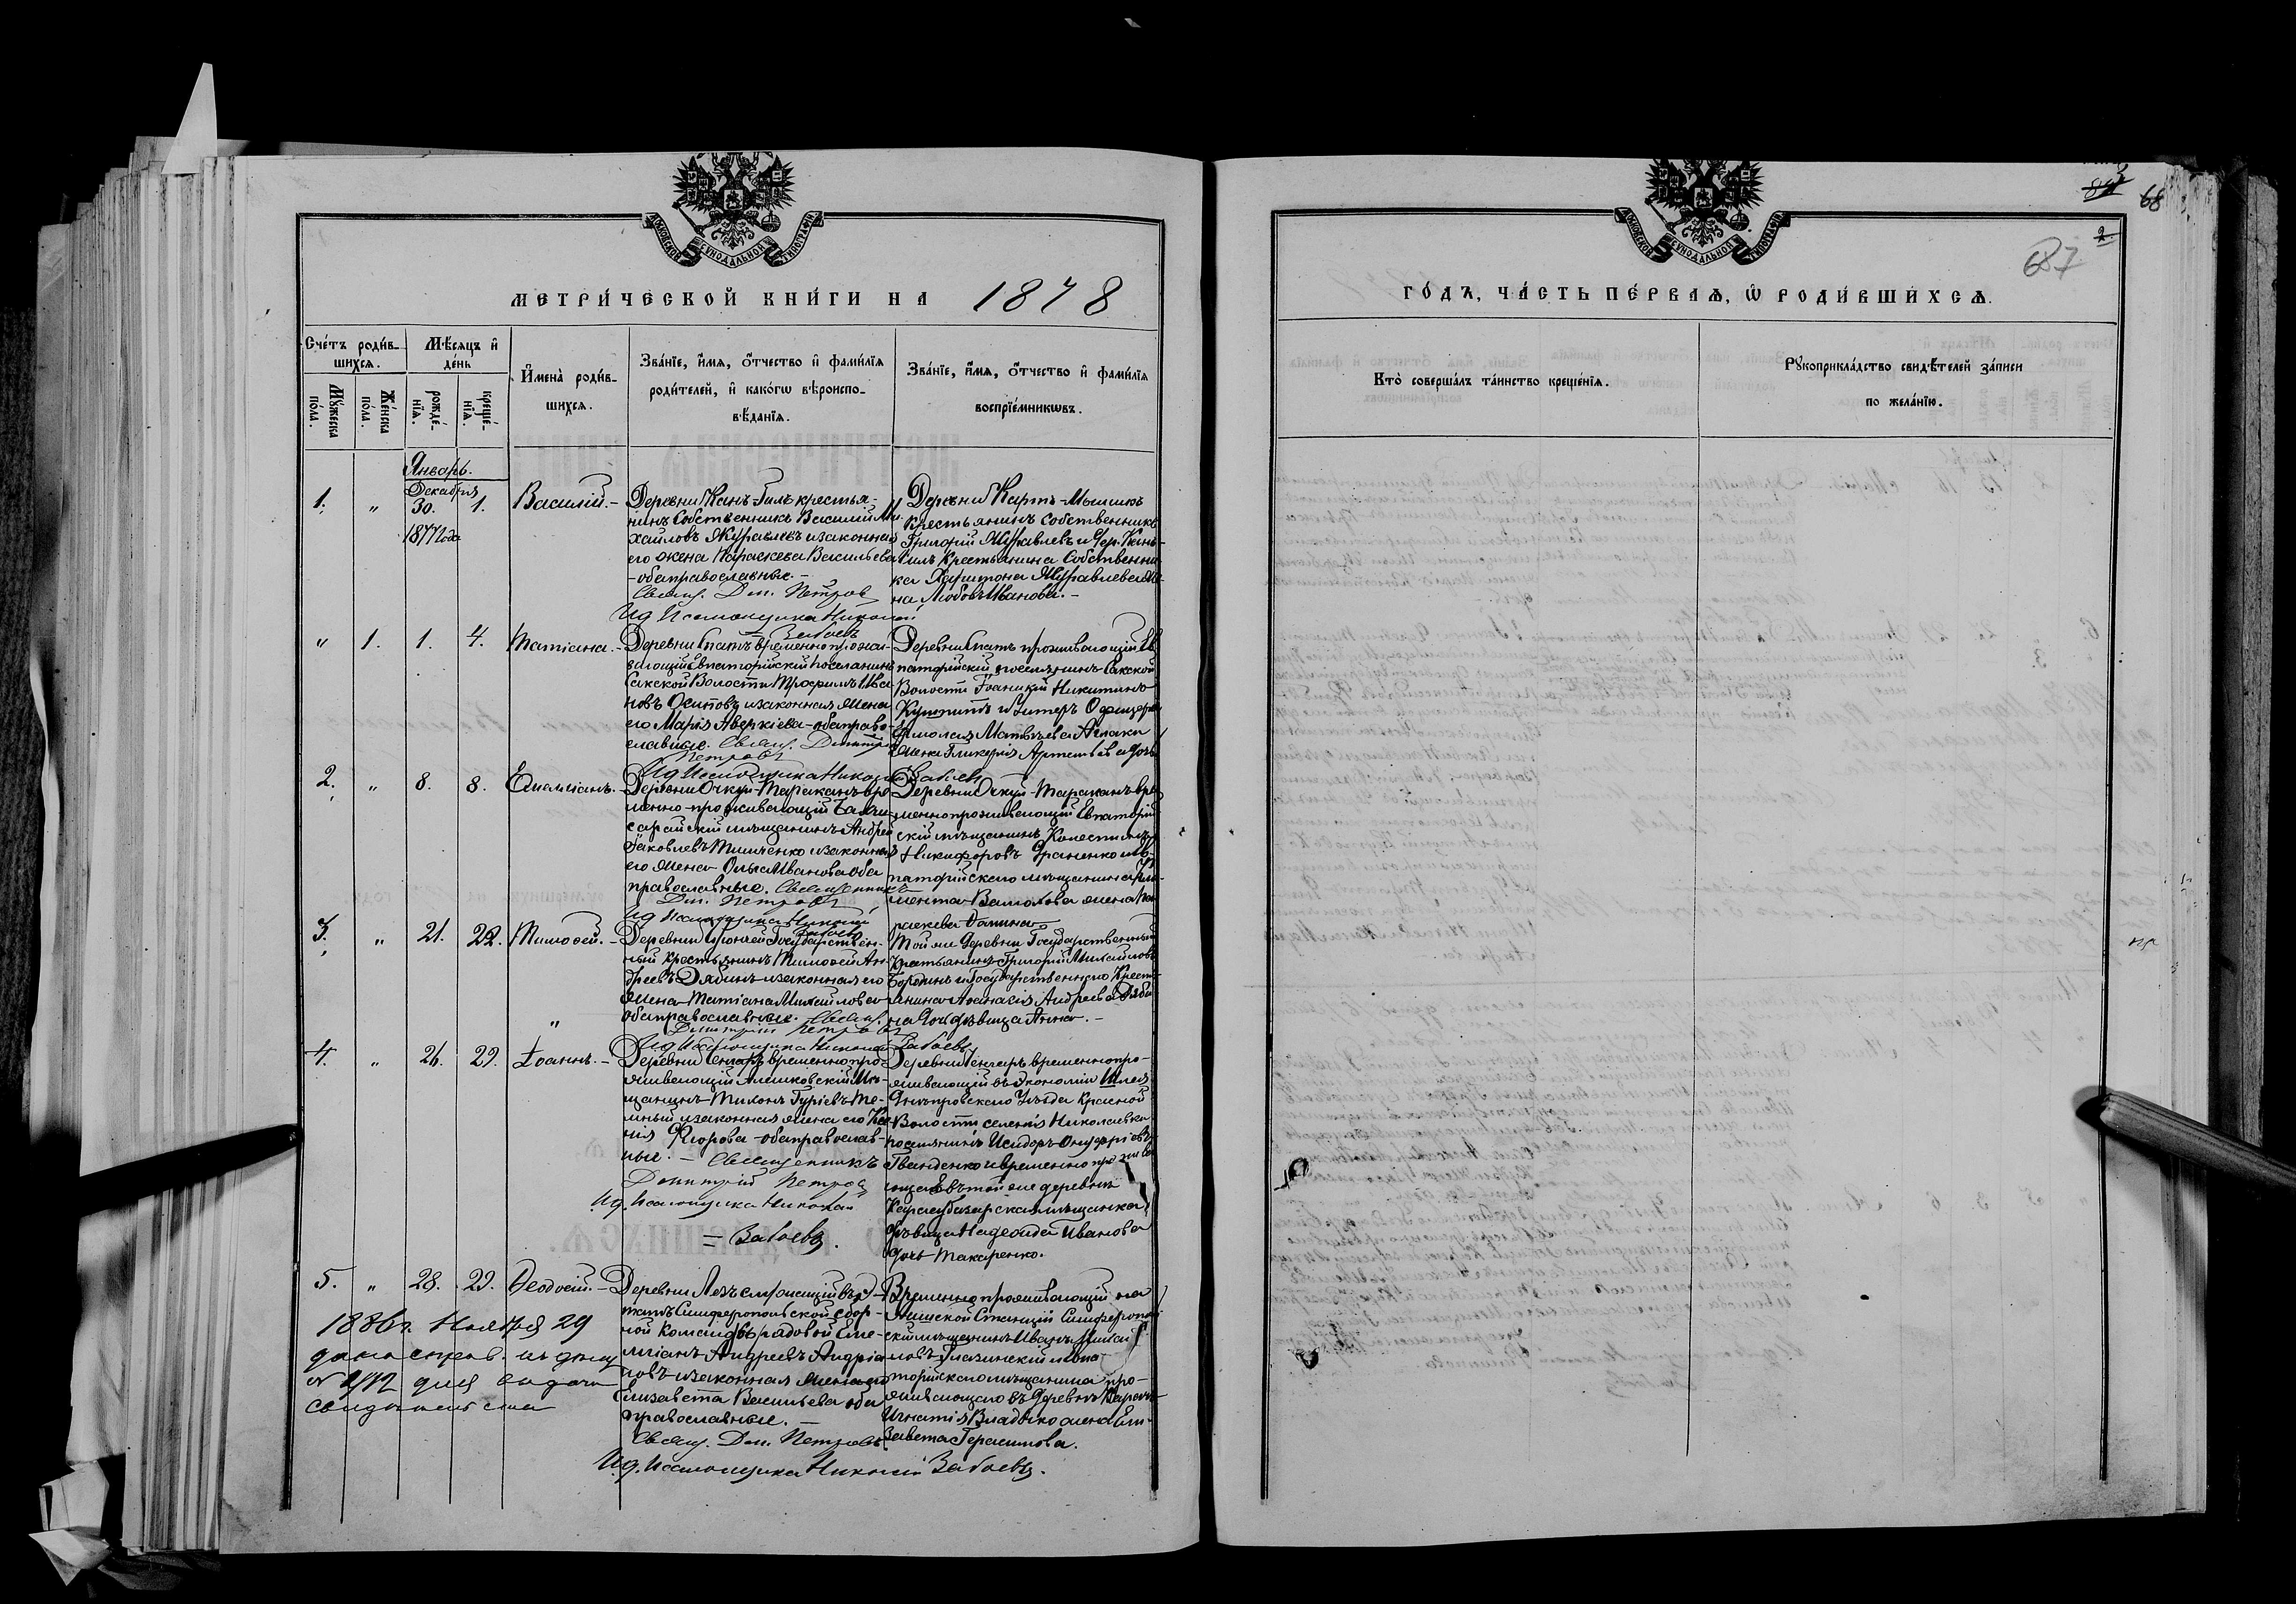 МОСКОВСКОЙ СѴНОДАЛЬНОЙ ТИПОГРАФІИ
МЕТРИ́ЧЕСКОЙ КНИ́ГИ НА 1878
Сче́тъ роди́в-
шихсѧ.
Мꙋ́жеска
по́ла.
Же́нска
по́ла.
Мѣ́сѧцъ и҆
де́нь
рожде́-
нїѧ.
креще́-
нїѧ.
И҆мена̀ роди́в-
шихсѧ.
Зва́нїе, и҆́мѧ, ѻ҆́тчество и҆ фами́лїѧ
роди́телей, и҆ како́гѡ вѣ̀роиспо-
вѣ́данїѧ.
Зва́нїе, и҆́мѧ, ѻ҆́тчество и҆ фами́лїѧ
воспрїе́мникѡвъ.
Январь.
1. " Декабря 30. 1877 года 1. Василій. –
Деревни Канъ-Гилъ крестья-
нинъ Собственникъ Василій Ми-
хайловъ Журавлевъ и законная
его жена Параскева Васильева
– оба православные. –
Свящ. Дм. Петров
Ид Псаломщика Николай
Забаевъ
Деревни Картъ-Мышикъ
Крестьянинъ Собственникъ
Григорій Журавлевъ и Дер. Кань-
Гилъ Крестьянина Собственни-
ка Харитона Журавлева же-
на Любовь Иванова. –
" 1. 1. 4. Татіана. –
Деревни Спатъ временно прожи-
вающій Евпаторійскій поселянинъ
Сакской Волости Трофимъ Ива-
новъ Осиповъ и законная жена
его Марія Аверкіева – оба право-
славные. Свящ. Димитр
Петровъ
Ид Псаломщика Николай Забаевъ
Деревни Спатъ проживающій Ев-
паторійскій поселянинъ Сакской
Волости Іоанникій Никитинъ
и Унтеръ Офицера
Матвѣева
жена Гликерія Артемьева дочь
2. " 8. 8. Емеліанъ. –
Деревни Очкуй-Тараканъ вре-
менно-проживающій Бахчи-
сарайскій мѣщанинъ Андрей
Іаковлевъ Тимченко и законная
его жена Ольга Иванова оба
православные. Священникъ
Дм. Петровъ
Ид Псаломщика Николай
Забаевъ
Деревни Очкуй-Тараканъ вре-
менно проживающій Евпаторій-
скій мѣщанинъ
Никифоровъ и Ев-
паторійскаго мѣщанина
жена Па-
раскева
3. " 21. 22. Тимоѳей. –
Деревни Государствен-
ный крестьянинъ Тимоѳей Ан-
дреевъ Дябинъ и законная его
жена Татіана Михайлова –
оба православные. Свящ.
Димитрій Петровъ
Ид Псаломщика Николай Забаевъ
Той же Деревни Государственный
Крестьянинъ Григорій Михайловъ
Бородинъ и Государственнаго Крестья-
нина Аѳанасія Андреева Дяби-
на дочь дѣвица Анна. –
4. " 26. 29. Іоаннъ. –
Деревни временно про-
живающій Алешковскій Мѣ-
щанинъ Тихонъ Гуріевъ Те-
мный и законная жена его Ксе-
нія Ѳедорова – оба православ-
ные. – Священникъ
Димитрій Петров
Ид. Псаломщика Николай
= Забаевъ.
Деревни временно про-
живающій въ Экономіи
Днѣпровскаго Уѣзда Красной
Волости селенія Николаевка
поселянинъ Исидоръ Онуфріевъ
и временно прожива-
ющая въ той же деревнѣ
Карасубазарская мѣщанка
дѣвица Надежда Иванова
дочь Макаренко.
5. " 28. 29. Ѳеодосій. –
Деревни
Симферопольской сбор-
ной команды рядовой Еме-
ліанъ Андреевъ Андріа-
новъ и законная жена его
Елизавета Васильева оба
православные. –
Свящ. Дм. Петровъ
Ид. Псаломщика Николай Забаевъ.
Временно проживающій на
Станціи Симферополь-
скій мѣщанинъ Иванъ Михай-
ловъ и Евпа-
торійскаго мѣщанина про-
живающаго въ деревнѣ
Игнатія Владычко жена Ели-
завета Герасимова.
1886 г. Ноября 29
дана справ.
№ 2412 для выдачи
свидѣтельства
МОСКОВСКОЙ СѴНОДАЛЬНОЙ ТИПОГРАФІИ
68
2.
687
ГО́ДЪ, ЧА́СТЬ ПЕ́РВАѦ, Ѡ҆ РОДИ́ВШИХСѦ.
Кто̀ соверша́лъ та́инство креще́нїѧ.
Рꙋкоприкла́дство свидѣ́телей за́писи
по жела́нїю.